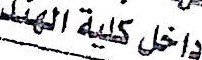 داخل كلية الهند